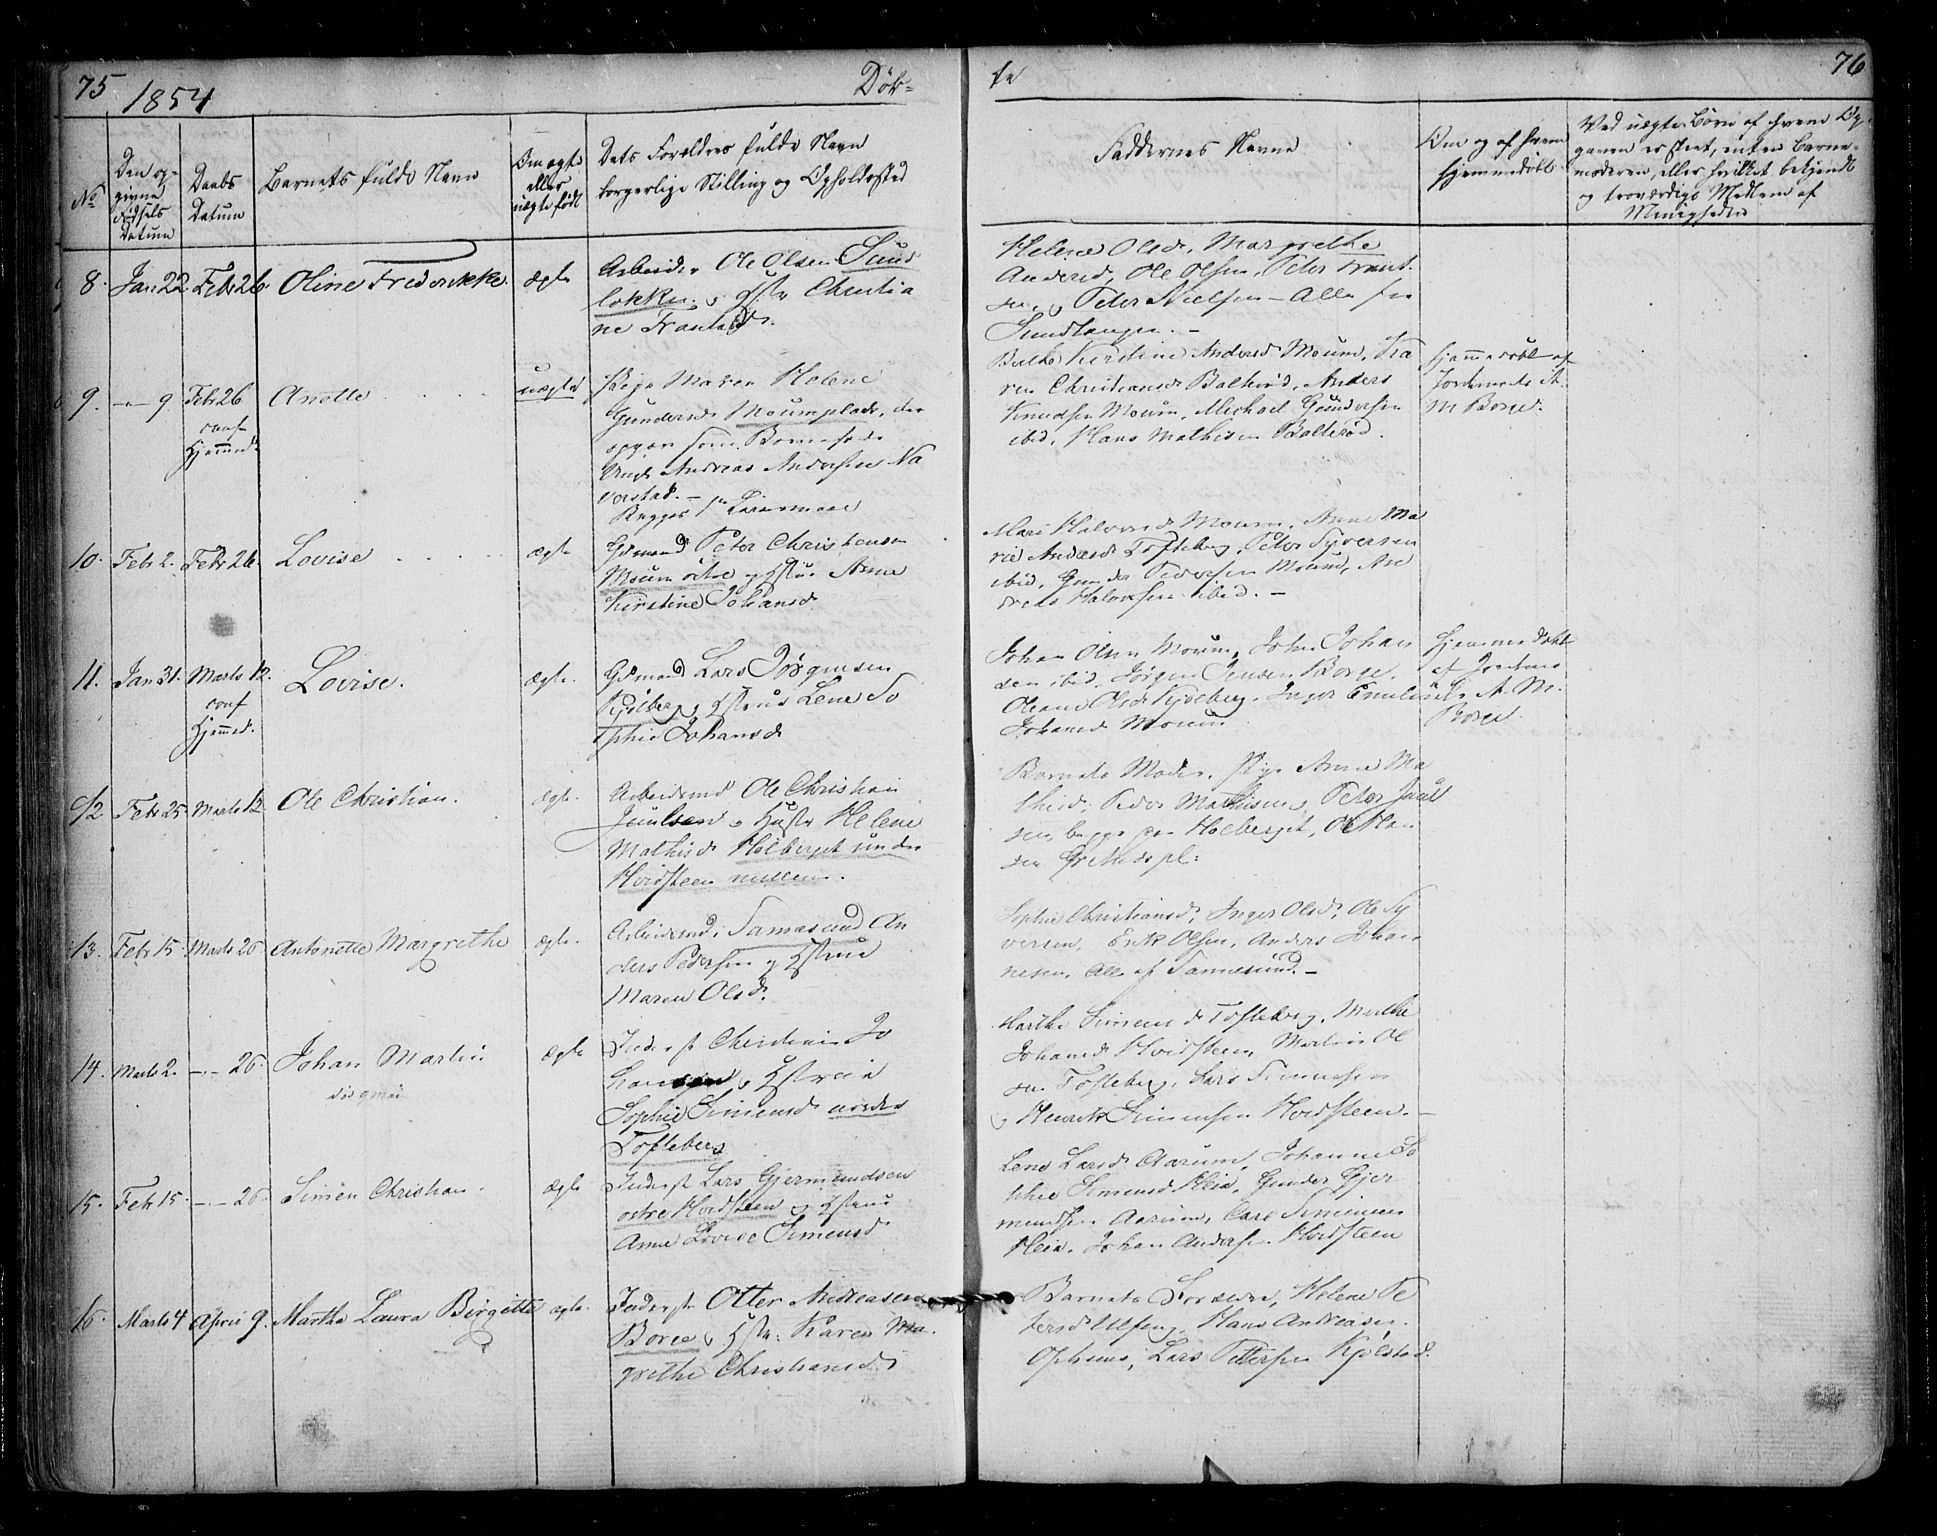 75 1854 Døb=
te 76
No
Den op-
givne
Fødsels
Datum
Daabs
Datum
Barnets fulde Navn
Om ægte
eller
uægte født
Dets Forældres fulde Navn
borgerlige Stilling og Opholdssted
Faddernes Navne
Om og af hvem
hjemmedøbt
Ved uægte Børn af hvem Op-
gaven er skeet, enten Barne-
moderen, eller hvilket bekjendt
og troværdigt Medlem af
Menigheden
8. Jan 22. Febr 26. Oline Frederikke. ægte
Arbeider Ole Olsen Sund
løkken og Hstr Christia
ne Frantsd.
Helene Olsd, Margrethe
Andersd, Ole Olsen, Peter Frant
sen, og Peter Nielsen – Alle fra
Sundtangen. –
9. -"- 9 Febr 26
conf
Hjemmed.
Anette uægte
Pige Maren Helene
Gundersd Moumplads, der
opgav som Barnefader
Ungk Andreas Andersen Na
verstad. –
Begges 1ste Leiermaal
Kirstine Andersd Moum, Ka
ren Christiansd Balterød, Anders
Knudsen Moum, Michael Gundersen
ibid, Hans Mathisen Balterød.
Hjemmedøbt af
Jordemoder A.
M Borge.
10. Febr 2. Febr 26. Lovise ægte
Gdmand Peter Christensen
Moum østre og Hstru Anne
Kirstine Johansd
Mari Halvorsd Moum, Anne Ma
rie Andersd Tofteberg, Peter Syversen
ibid, Gunder Pedersen Moum, An
dreas Halvorsen ibid. –
11. Jan 31. Marts 12.
conf
Hjemmed.
Lovise. ægte.
Gdmand Lars Jørgensen
Kjølberg og Hstrue Lene So
phie Johansd
Johan Olsen Moum, John Johan
sen ibid, Jørgen Jensen Borge,
Oleane Olsd Kjølberg, Inger Emilie
Johansd Moum
Hjemmedøbt
af Jordemo
A. M.
Borge.
12 Febr 25. Marts 12 Ole Christian. ægte.
Arbeidsmd Ole Christian
Juulsen og Hustr Helene
Mathisd Holberget under
Hvidsteen mellem.
Barnets Moder, Pige Anne Ma
thisd, Peder Mathisen, Peter Juul
sen, begge paa Holberget, Ole Han
sen pl:
13. Febr 15. Marts 26 Antonette Margrethe ægte.
Arbeidsmd i Tamesund An
ders Pedersen og Hstrue
Maren Olsd.
Sophie Christiansd, Inger Olsd, Ole Sy
versen, Erik Olsen, Anders Johan
nesen, alle af Tamesund. –
14. Marts 2. -"- 26. Johan Martin ægte
Inderst Christian Jo
hansen og Hstrue
Sophie Simensd nedre
Tofteberg
Marthe Simensd Tofteberg, Marthe
Johansd Hvidsteen, Martin Ol
sen Tofteberg, Lars Simensen
og Henrik Simensen Hvidsteen. –
15. Febr 15. -"- 26. Simen Christian. ægte
Inderst Lars Gjermundsen
østre Hvidsteen og Hstrue
Anne Lovise Simensd
Lene Larsd Aarum, Johanne So
phie Simensd Heia, Gunder Gjer
mundsen Aarum, Carl Simensen
Heia, Johan Anders. Hvidsteen
16. Marts 4 April 9. Marthe Laura Birgitte ægte.
Inderst Otter Andreasen
Borge og Hstr: Karen Ma
grethe Christiansd
Barnets Forældre, Helene Pe
tersd Ulfeng, Hans Andreasen
Ophuus, Lars Pettersen Kjølstad.